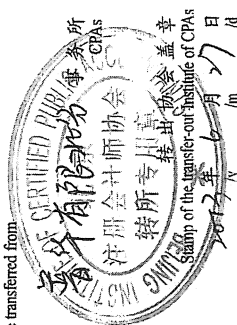 e transferred from
事务所
CPAs
INSTITUTE OF CERTIFIED PUBLIC
BEIJING
注册会计师协会
转所专用章
转出协会盖章
Stamp of the transfer-out Institute of CPAs
年 6 月 27 日
/y /m /d